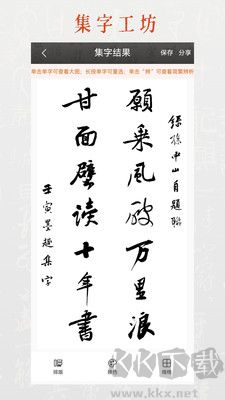 集字工坊
集字结果
保存 分享
单击单字可查看大图；长按单字可重选；单击“辨”可查看简繁辨析
錄孫中山自題聯
願乘風破万里浪
甘面壁读十年書
壬寅墨趣集字
排版
横格
KK下载
www.kkx.net